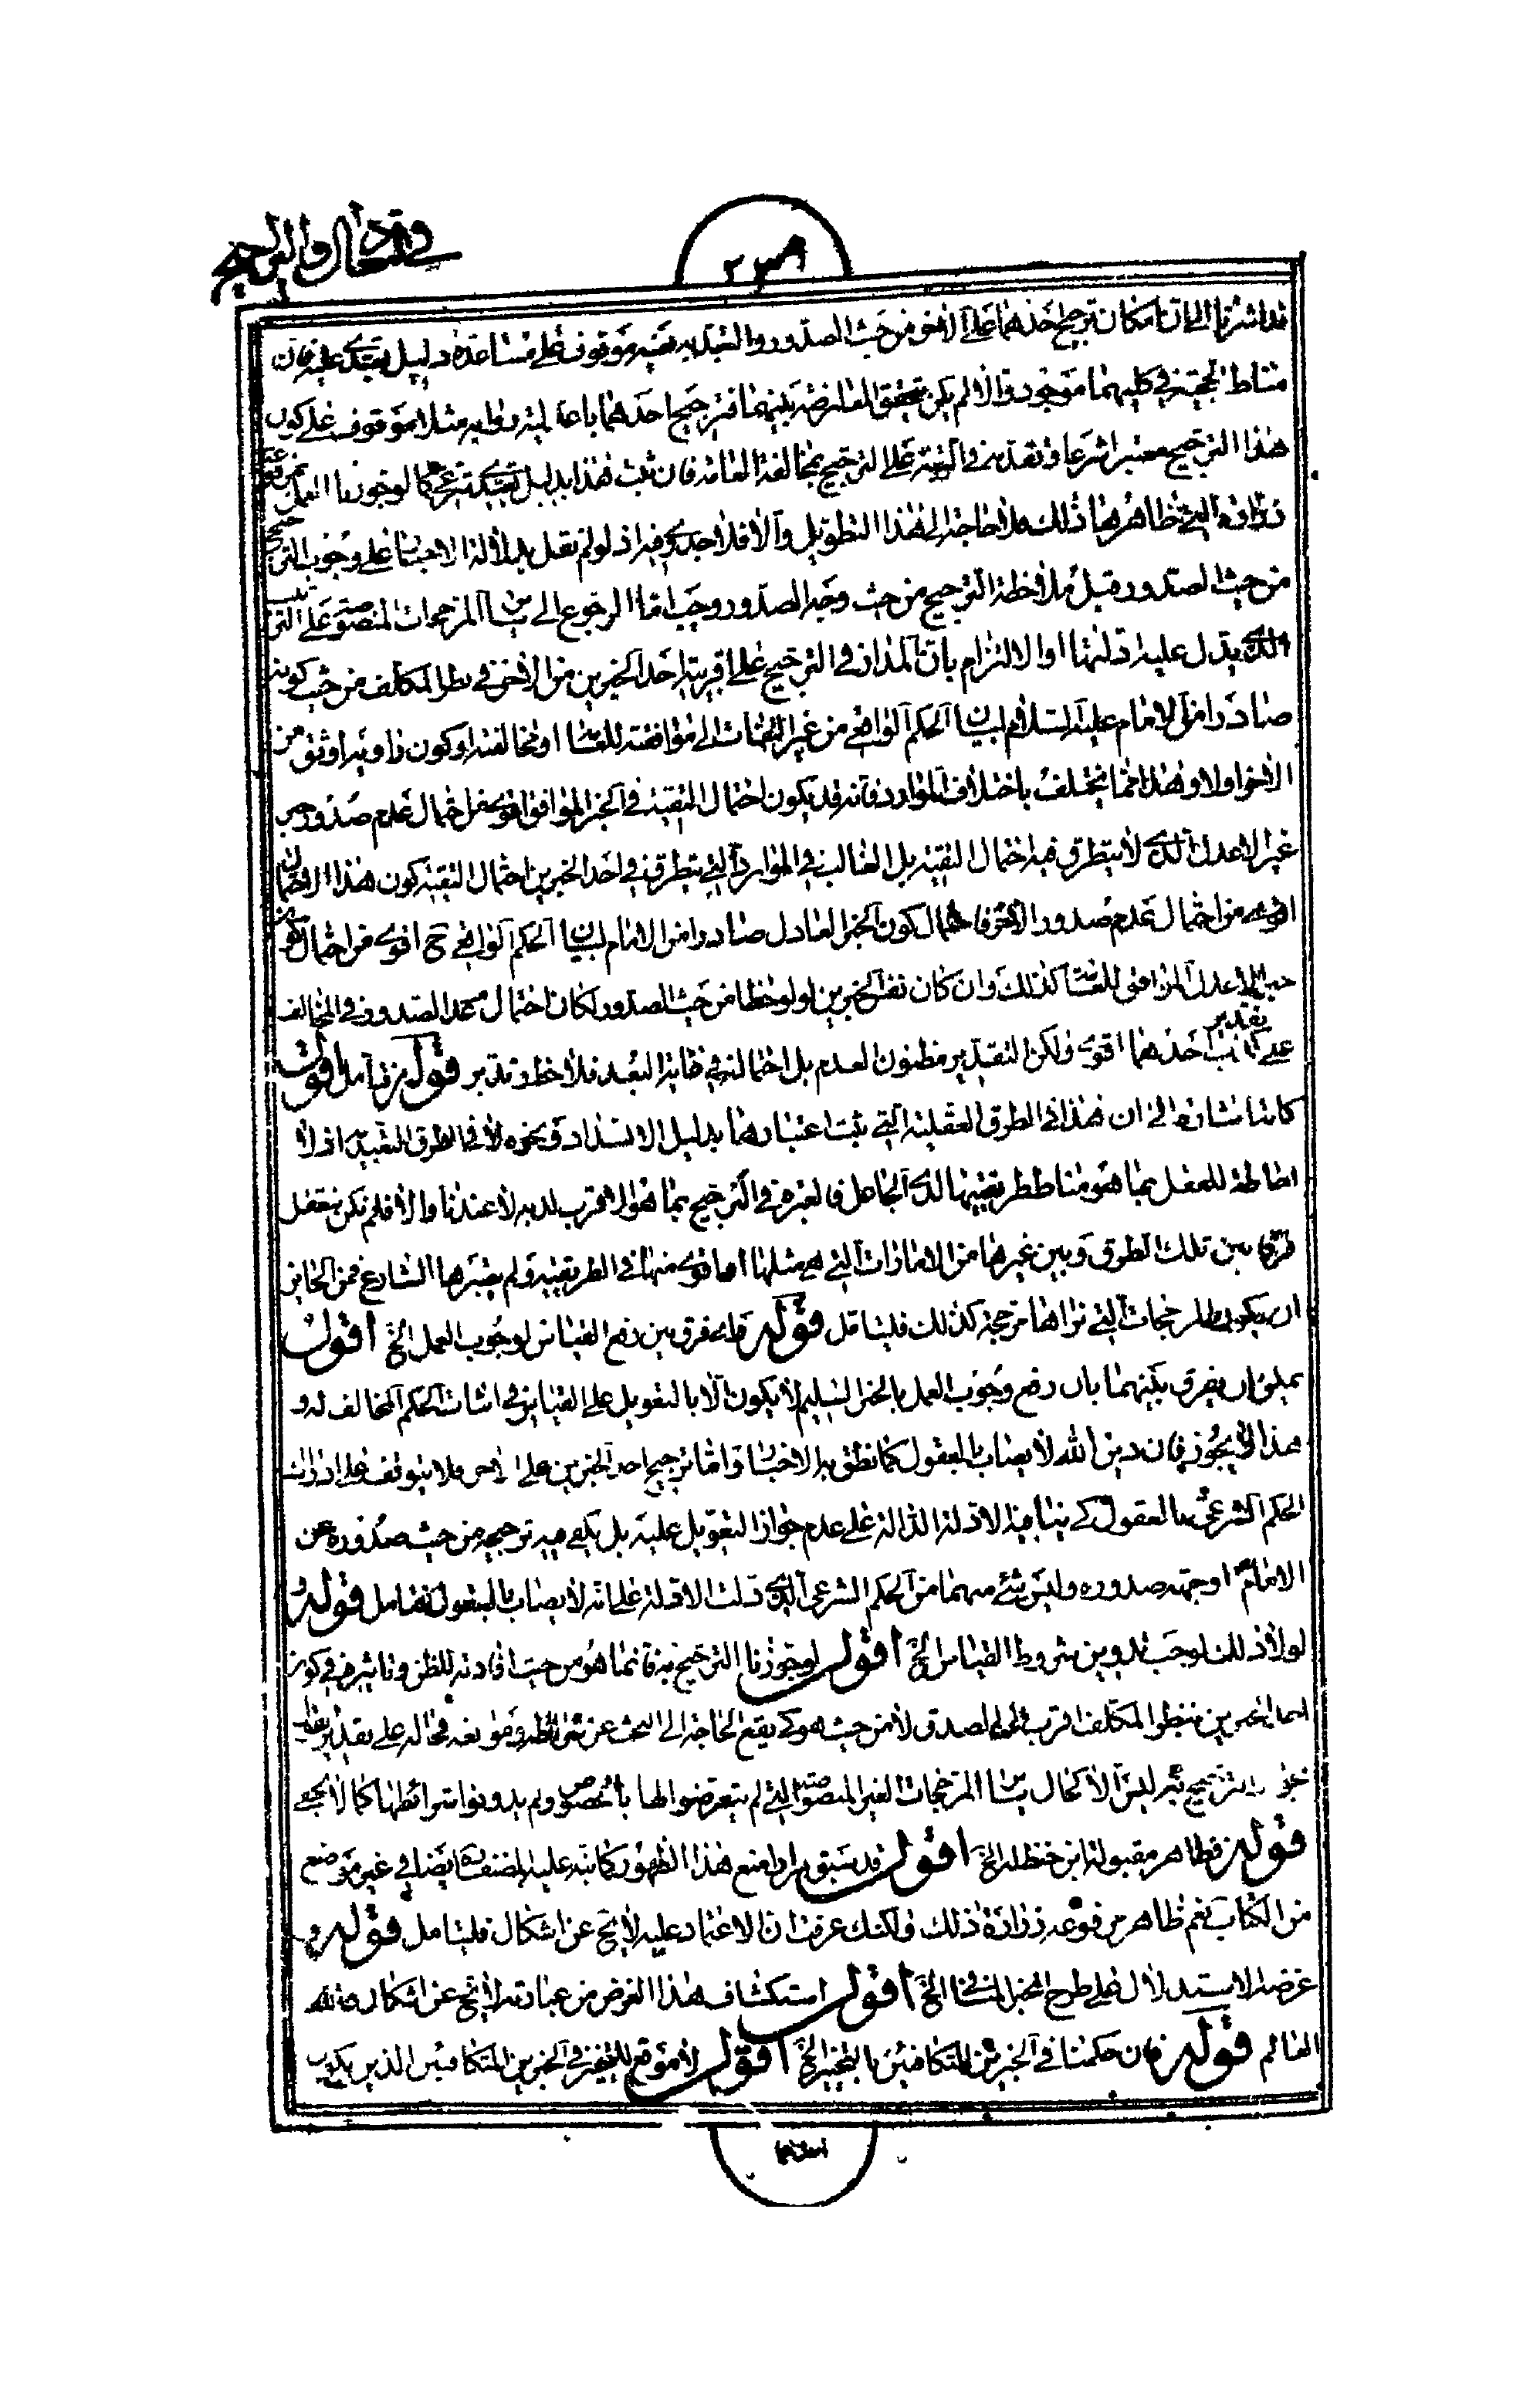 في التعادل والتراجيح
قد اشرنا الى ان امكان ترجيح احدهما على الآخر من حيث الصدور والتعبد به بعينه موقوف على مساعدة دليل تعبدي عليه فان
مناط الحجية في كليهما موجود والا لم يكن يتحقق المعارضة بينهما فترجيح احدهما باعدلية راويه مثلا موقوف على كون
هذا الترجيح معتبرا شرعا وتقدمه في الرتبة على الترجيح بمخالفة العامة فان ثبت هذا بدليل تعبدي شرعي كما لو جوزنا العمل
زرارة التي ظاهرها ذلك فلا حاجة الى هذا التطويل والا فلا جدوى فيه اذ لو لم نقل بدلالة الاخبار على وجوب الترجيح
من حيث الصدور قبل ملاحظة الترجيح من حيث وجه الصدور وجب اما الرجوع الى سائر المرجحات المنصوصة على الترتيب
الذي يدل عليه ادلتها او الالتزام بان المدار في الترجيح على اقربية احد الخبرين من الآخر في نظر المكلف من حيث كونه
صادرا من الامام عليه السلام لبيان الحكم الواقعي من غير التفات الى موافقته للعامة او مخالفته او كون راويه اوثق من
الآخر اولا وهذا مما يختلف باختلاف الموارد فانه قد يكون احتمال التقية في الخبر الموافق اقوى من احتمال عدم صدور خبر
غير الاعدل الذي لا يتطرق فيه احتمال التقية بل الغالب في الموارد التي يتطرق في احد الخبرين احتمال التقية كون هذا الاحتمال
اقوى من احتمال عدم صدور الآخر فاحتمال كون الخبر العادل صادرا من الامام لبيان الحكم الواقعي ح اقوى من احتمال كون
خبر الاعدل الموافق للعامة كذلك وان كان نفس الخبرين لو لوحظا من حيث الصدور لكان احتمال عدم الصدور في المخالف
على تقدير كذب احدهما اقوى ولكن التقدير مظنون العدم بل احتماله في غاية البعد فلاحظ وتدبر قوله فتأمل اقول
كانه اشارة الى ان هذا في الطرق العقلية التي ثبت اعتبارها بدليل الانسداد ونحوه لا في الطرق التعبدية اذ لا
احاطة للعقل بما هو مناط طريقيتها لدى الجاعل فالعبرة في الترجيح بما هو الاقرب لديه لا عندنا والا فلم نكن نتعقل
فرقا بين تلك الطرق وبين غيرها من الامارات التي هي مثلها او اقوى منها في الطريقية ولم يعتبرها الشارع فمن الجايز
ان يكون المرجحات التي نراها مرجحة كذلك فليتامل قوله واي فرق بين رفع القياس لوجوب العمل الخ اقول
يمكن ان يفرق بينهما بان رفع وجوب العمل بالخبر السليم لا يكون الا بالتعويل على القياس في اثبات الحكم المخالف له و
هذا لا يجوز فان دين الله لا يصاب بالعقول كما نطق به الاخبار واما ترجيح احد الخبرين على الآخر فلا يتوقف على ادراك
الحكم الشرعي بالعقول كي ينافيه الادلة الدالة على عدم جواز التعويل عليه بل يكفي فيه ترجيحه من حيث صدوره عن
الامام او جهة صدوره وليس شئ منهما من الحكم الشرعي الذي دلت الادلة على انه لا يصاب بالعقول فتامل قوله و
لولا ذلك لوجب تدوين شروط القياس الخ اقول لو جوزنا الترجيح به فانما هو من حيث افادته للظن وتاثيره في كون
احد الخبرين بنظر المكلف اقرب الى الصدق لا من حيث هو كي يقع الحاجة الى البحث عن شرائطه وموانعه فحاله على تقدير
جواز الترجيح به ليس الا كحال سائر المرجحات الغير المنصوصة التي لم يتعرضوا لها بالخصوص ولم يدونوا شرائطها كما لا يخفى
قوله فظاهر مقبولة ابن حنظلة الخ اقول قد سبق مرارا منع هذا الظهور كما نبه عليه المصنف ايضا في غير موضع
من الكتاب نعم ظاهر مرفوعة زرارة ذلك ولكنك عرفت ان الاعتماد عليه لا يخ عن اشكال فليتامل قوله و
غرضه الاستدلال على طرح الخبر المنافي الخ اقول استكشاف هذا الغرض من عبارته لا يخ عن اشكال والله
العالم قوله فان حكمنا في الخبرين المتكافئين بالتخيير الخ اقول لا موقع للتخيير في الخبرين المتكافئين الذين يكون